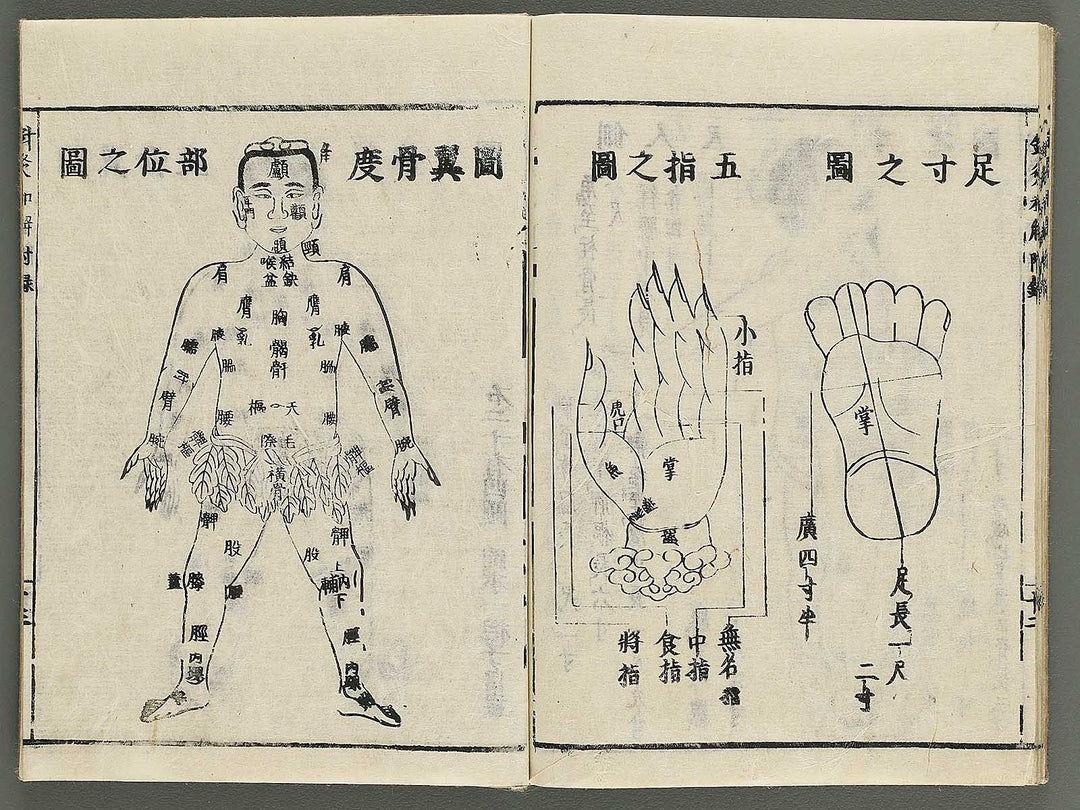 足寸之圖
掌
廣四寸半
足長一尺二寸
五指之圖
小指
虎口
魚
掌
無名指
中指
食指
將指
圖翼骨度
部位之圖
顱
顴
頸
結喉
缺盆
肩
肩
膺
膺
胸
乳
乳
腋
腋
𩩲骬
脇
脇
臂
臂
天樞
腰
腰
腕
腕
毛際
橫骨
髀樞
髀
髀
股
股
上
內輔
下
膝
脛
脛
內踝
內踝